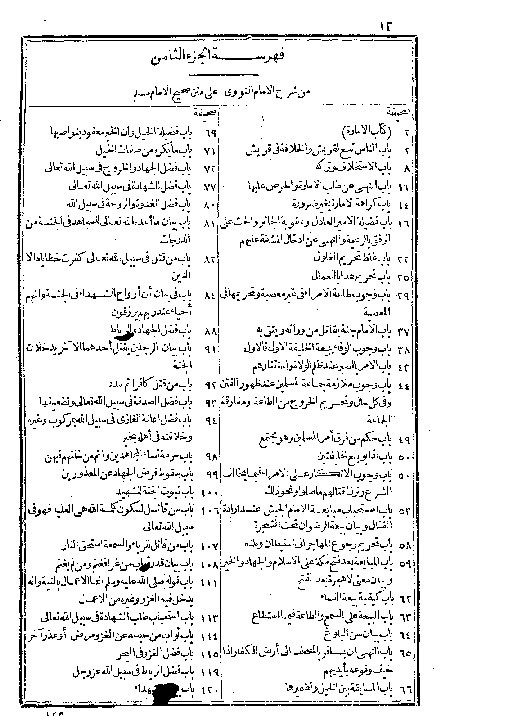 ١٢
فهرسة الجزء الثامن
من شرح الامام النووى على متن صحيح الامام مسلم
صحيفة
٢ (كتاب الامارة)
٢ باب الناس تبع لقريش والخلافة فى قريش
٨ باب الاستخلاف وتركه
١٦ باب النهى عن طلب الامارة والحرص عليها
١٤ باب كراهة الامارة بغير ضرورة
١٦ باب فضيلة الامير العادل وعقوبة الجائر والحث على
الرفق بالرعية والنهى عن ادخال المشقة عليهم
٢٢ باب غلظ تحريم الغلول
٢٥ باب تحريم هدايا العمال
٢٩ باب وجوب طاعة الامراء فى غير معصية وتحريمها فى
المعصية
٣٧ باب الامام جنة يقاتل من ورائه ويتقى به
٣٨ باب وجوب الوفاء ببيعة الخليفة الاول فالاول
٤٣ باب الامر بالصبر عند ظلم الولاة واستئثارهم
٤٤ باب وجوب ملازمة جماعة المسلمين عند ظهور الفتن
وفى كل حال وتحريم الخروج من الطاعة ومفارقة
الجماعة
٤٩ باب حكم من فرق أمر المسلمين وهو مجتمع
٥٠ باب اذا بويع لخليفتين
٥٠ باب وجوب الانكار على الامراء فيما يخالف
الشرع وترك قتالهم ماصلوا ونحو ذلك
٥٢ باب استحباب مبايعة الامام الجيش عند ارادة
القتال وبيان بيعة الرضوان تحت الشجرة
٥٨ باب تحريم رجوع المهاجر الى استيطان وطنه
٥٩ باب المبايعة بعد فتح مكة على الاسلام والجهاد والخير
وبيان معنى لاهجرة بعد الفتح
٦٢ باب كيفية بيعة النساء
٦٣ باب البيعة على السمع والطاعة فيما استطاع
٦٤ باب بيان سن البلوغ
٦٥ باب النهى ان يسافر بالمصحف الى أرض الكفار اذا
خيف وقوعه بأيديهم
٦٦ باب المسابقة بين الخيل وتضميرها
صحيفة
٦٩ باب فضيلة الخيل وأن الخير معقود بنواصيها
٧١ باب مايكره من صفات الخيل
٧٢ باب فضل الجهاد والخروج فى سبيل الله تعالى
٧٧ باب فضل الشهادة فى سبيل الله تعالى
٨٠ باب فضل الغدوة والروحة فى سبيل الله
٨١ باب بيان ما أعده الله تعالى للمجاهد فى الجنة من
الدرجات
٨٢ باب من قتل فى سبيل الله تعالى كفرت خطاياه الا
الدين
٨٤ باب فى بيان أن أرواح الشهداء فى الجنة وانهم
أحياء عند ربهم يرزقون
٨٨ باب فضل الجهاد والرباط
٩١ باب بيان الرجلين يقتل أحدهما الآخر يدخلان
الجنة
٩٢ باب من قتل كافرا ثم سدد
٩٣ باب فضل الصدقة فى سبيل الله تعالى وتضعيفها
٩٤ باب فضل اعانة الغازى فى سبيل الله بمركوب وغيره
وخلافته فى أهله بخير
٩٨ باب حرمة نساء المجاهدين واثم من خانهم فيهن
٩٩ باب سقوط فرض الجهاد عن المعذورين
١٠٠ باب ثبوت الجنة للشهيد
١٠٦ باب من قاتل لتكون كلمة الله هى العليا فهو فى
سبيل الله تعالى
١٠٧ باب من قاتل للرياء والسمعة استحق النار
١٠٨ باب بيان قدر ثواب من غزا فغنم ومن لم يغنم
١١١ باب قوله صلى الله عليه وسلم انما الاعمال بالنية وانه
يدخل فيه الغزو وغيره من الاعمال
١١٣ باب استحباب طلب الشهادة فى سبيل الله تعالى
١١٤ باب ثواب من حبسه عن الغزو مرض أو عذر آخر
١١٥ باب فضل الغزو فى البحر
١١٩ باب فضل الرباط فى سبيل الله عز وجل
١٢٠ باب بيان الشهداء